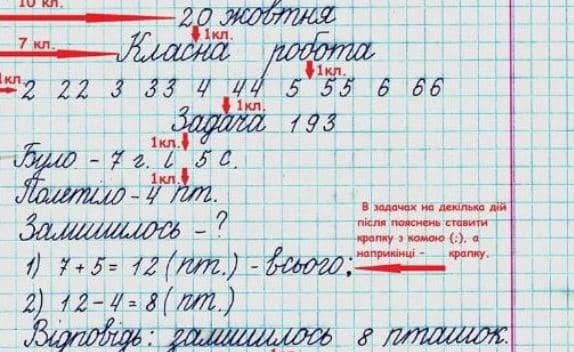 10 кл.
20 жовтня
1кл.
7 кл.
Класна робота
1кл.
1кл.
2 22 3 33 4 44 5 55 6 66
1кл.
Задача 193
1кл.
Було - 7 г. і 5 с.
1кл.
Полетіло - 4 пт.
Залишилось - ?
В задачах на декілька дій
після пояснень ставити
крапку з комою (;), а
наприкінці - крапку.
1) 7 + 5 = 12 (пт.) - всього;
2) 12 - 4 = 8 (пт.)
Відповідь: залишилось 8 пташок.